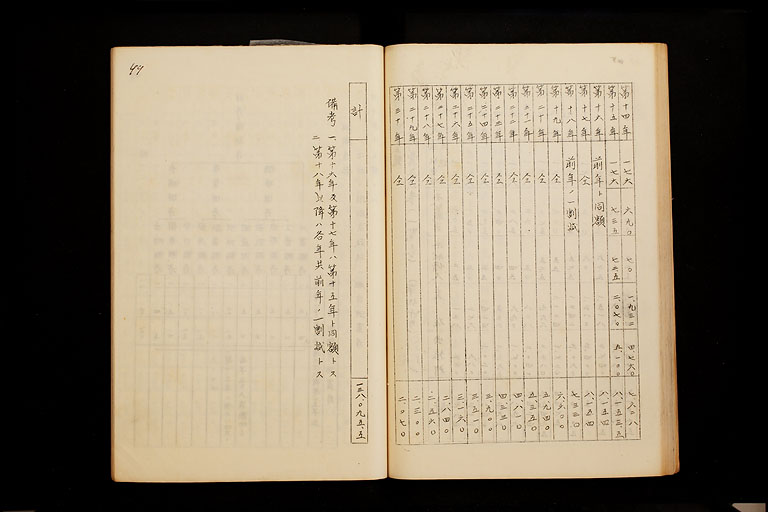 第十四年 一七六 六九〇 七〇 一、九三二 四七六〇 七六二八
第十五年 一七六 七三五 二、〇七〇 五、一〇〇 八一五三、五
第十六年 前年ト同額 八一五四
第十七年 仝 八一五四
第十八年 前年ノ一割減 七三三〇
第十九年 仝 六六〇〇
第二十年 仝 五、九四〇
第二十一年 仝 五、三五〇
第二十二年 仝 四、八一〇
第二十三年 仝 四、三三〇
第二十四年 仝 三、九〇〇
第二十五年 仝 三、五一〇
第二十六年 仝 三、一六〇
第二十七年 仝 二、八四〇
第二十八年 仝 二、五六〇
第二十九年 仝 二、三〇〇
第三十年 仝 二、〇七〇
計 一三八〇九五、五
備考 一 第十六年及第十七年ハ第十五年ト同額トス
二 第十八年以降ハ各年共前年ノ一割減トス